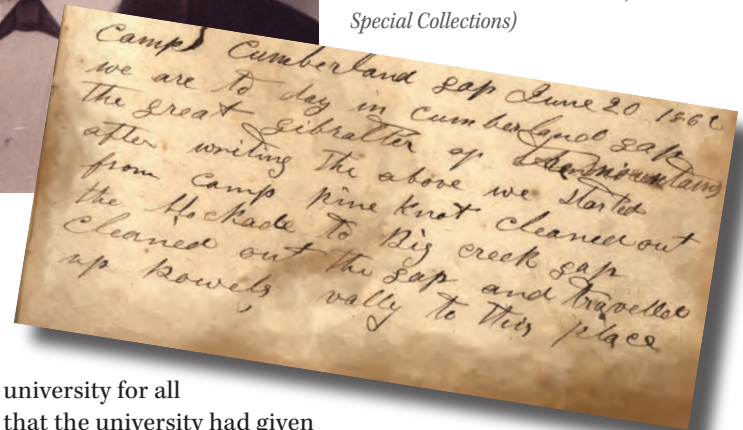 Special Collections)
Camp Cumberland gap June 20 1862
we are to day in Cumberland gap
the great Gibralter of the mountains
after writing the above we started
from Camp pine Knot cleaned out
the blockade to Big creek gap
Cleaned out the gap and travelled
up powels vally to this place
university for all
that the university had given